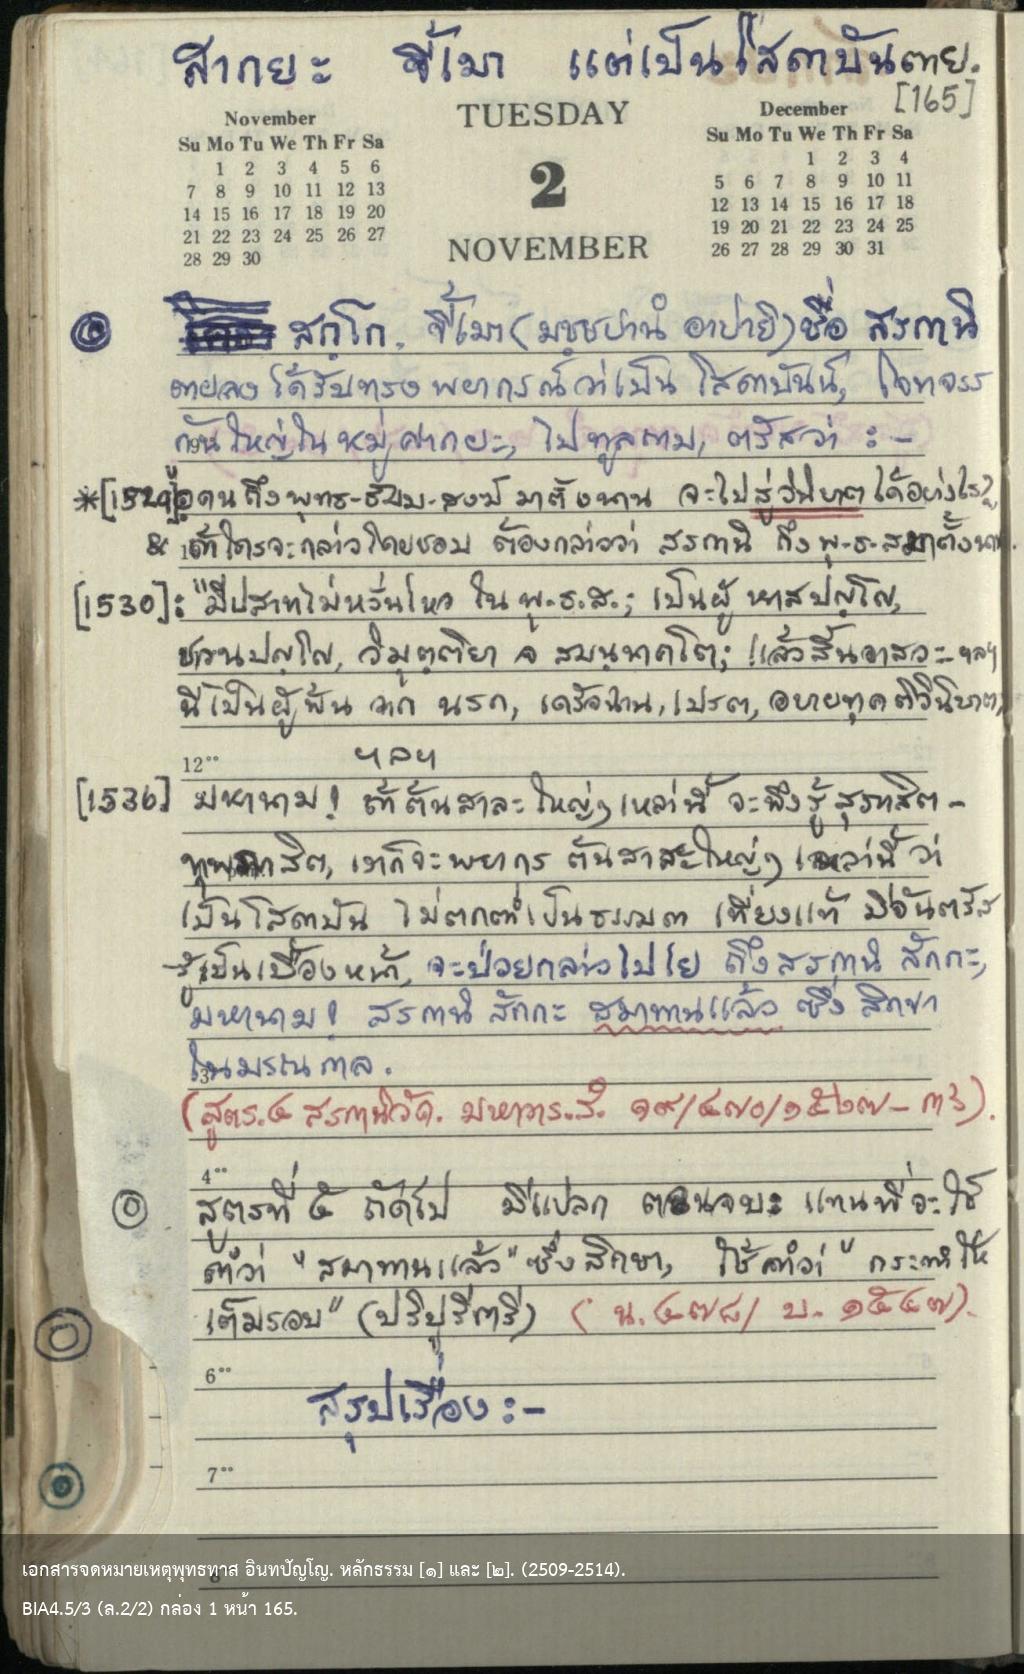 สากยะ ขี้เมา แต่เป็นโสดาบันตาย.
[165]
November
Su Mo Tu We Th Fr Sa
1 2 3 4 5 6
7 8 9 10 11 12 13
14 15 16 17 18 19 20
21 22 23 24 25 26 27
28 29 30
TUESDAY
2
NOVEMBER
December
Su Mo Tu We Th Fr Sa
1 2 3 4
5 6 7 8 9 10 11
12 13 14 15 16 17 18
19 20 21 22 23 24 25
26 27 28 29 30 31
สกฺโก. ขี้เมา (มชฺชปานํ อาปายิ) ชื่อ สรกานิ
ตายลง ได้รับทรงพยากรณ์ว่าเป็น โสดาบันน์, โจทจรร
กันใหญ่ในหมู่ศากยะ, ไปทูลถาม, ตรัสว่า :-
*[1529] ผู้อุดนถึงพุทธ-ธัมม-สงฆ์ มาตั้งนาน จะไปสู่วินิบาต ได้อย่างไร?
& ถ้าใครจะกล่าวโดยชอบ ต้องกล่าวว่า สรกานิ ถึง พุ-ธ-ส มาตั้งนาน.
[1530]: "มีปสาทไม่หวั่นไหว ใน พุ.ธ.ส.; เป็นผู้ หาสปญฺโญ,
ชวนปญฺโญ, วิมุตฺติยา จ สมนฺนาคโต; แล้วสิ้นอาสวะ- ฯลฯ
นี้เป็นผู้พ้น จาก นรก, เดรัจฉาน, เปรต, อบายทุคติวินิบาต,
12°° ฯลฯ
[1536] มหานาม! ถ้าต้นสาละใหญ่ๆ เหล่านี้ จะพึงรู้ สุภาสิต-
ทุพภาสิต, เราก็จะพยากร ต้นสาละใหญ่ๆ เหล่านี้ ว่า
เป็นโสดาบัน ไม่ตกต่ำเป็นธรรมดา เที่ยงแท้ มีอันตรัส
รู้เป็นเบื้องหน้า, จะป่วยกล่าวไปไย ถึงสรกานิ สักกะ,
มหานาม! สรกานิ สักกะ สมาทานแล้ว ซึ่ง สิกขา
ในมรณกาล.
(สูตร.๔ สรกานิวัค. มหาวาร.สํ. ๑๙/๔๗๐/๑๕๒๗-
4°°
สูตรที่ ๕ ถัดไป มีแปลก ตอนจบ: แทนที่จะใช้
คำว่า "สมาทานแล้ว" ซึ่งสิกขา, ใช้คำว่า "กระทำให้
เต็มรอบ" (ปริปูริการี) (น. ๔๗๔/ บ. ๑๕๔๗).
6°°
สรุปเรื่อง :-
7°°
เอกสารจดหมายเหตุพุทธทาส อินทปัญโญ. หลักธรรม [๑] และ [๒]. (2509-2514).
BIA4.5/3 (ล.2/2) กล่อง 1 หน้า 165.